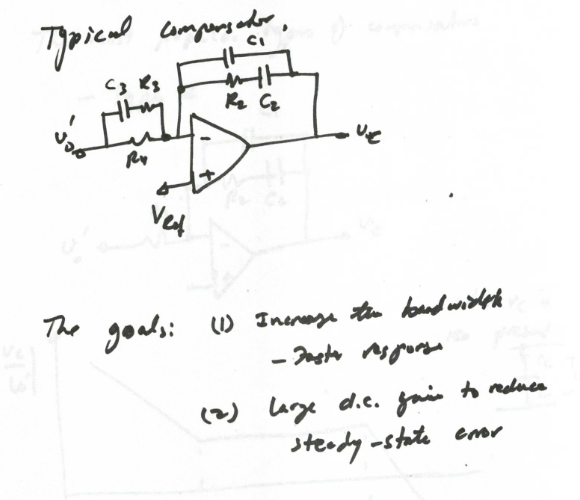 Typical compensator.
C1
C3 R3
R2 C2
vo'
R4
-
vc
+
Vref
The goals: (1) Increase the bandwidth
- Faster response
(2) Large d.c. gain to reduce
steady-state error